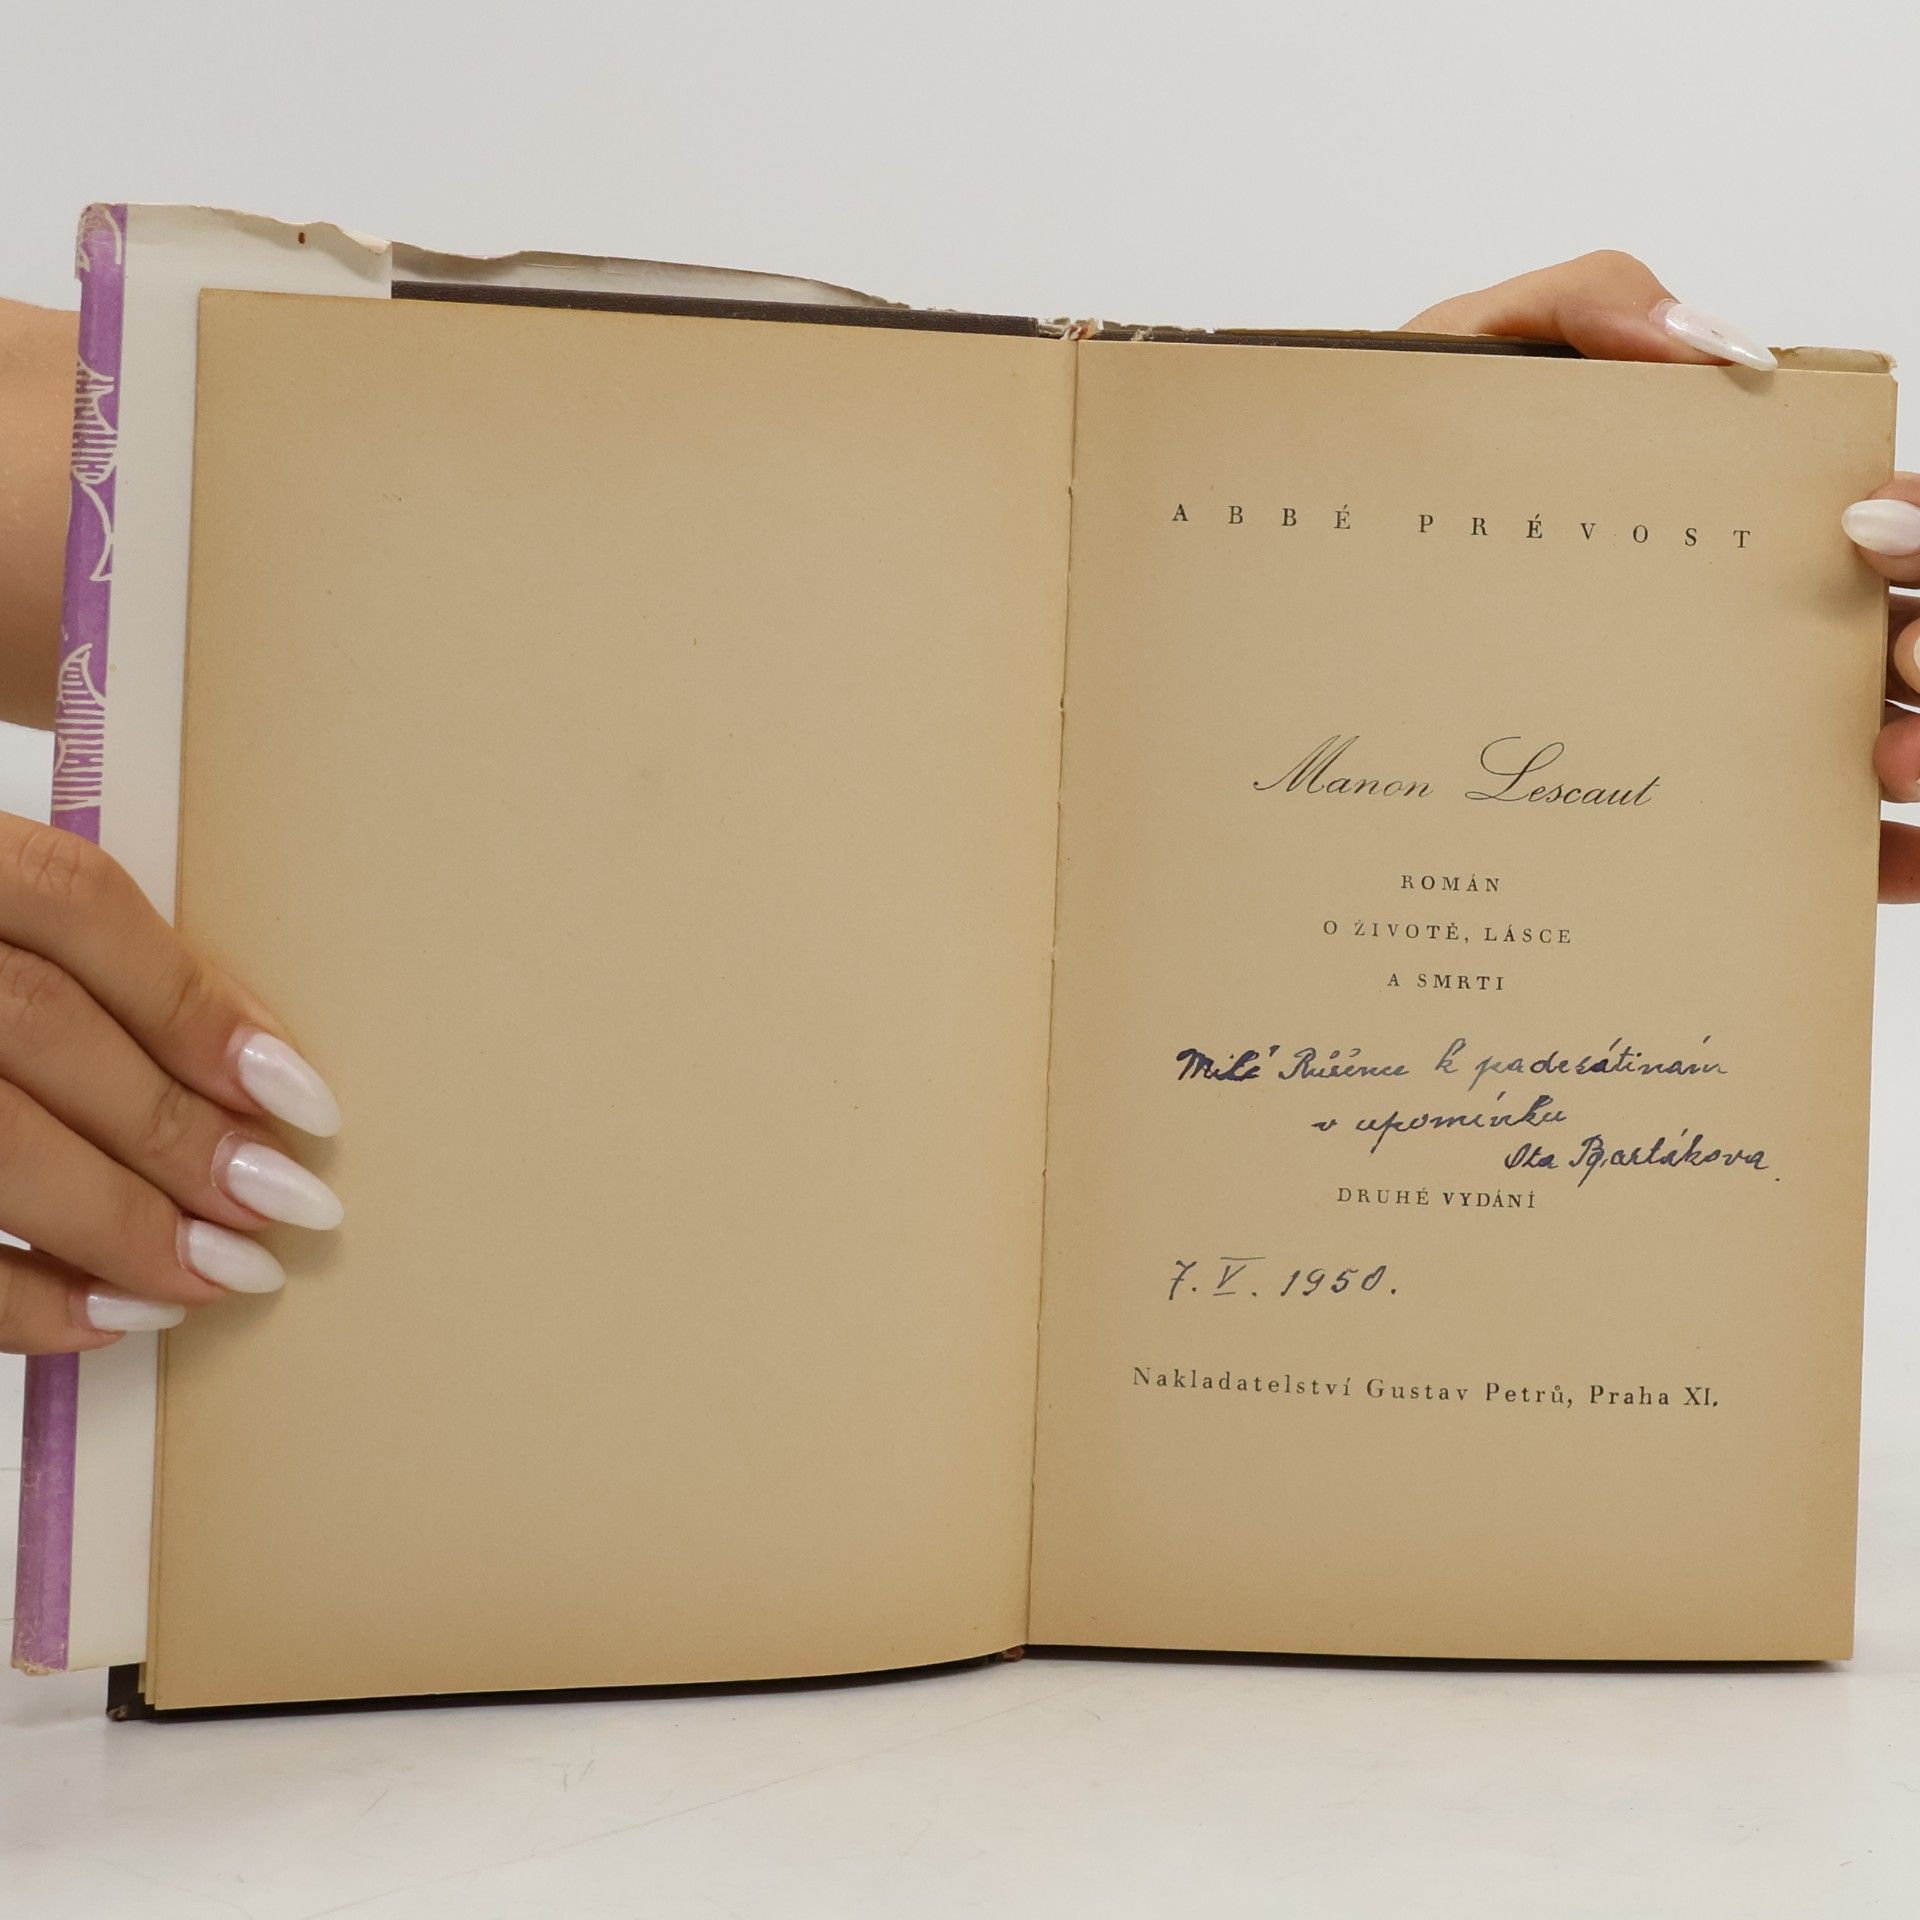 ABBÉ PRÉVOST
Manon Lescaut
ROMÁN
O ŽIVOTĚ, LÁSCE
A SMRTI
Milé Růžence k padesátinám
v upomínku
Ota Bartákova.
DRUHÉ VYDÁNÍ
7. V. 1950.
Nakladatelství Gustav Petrů, Praha XI.